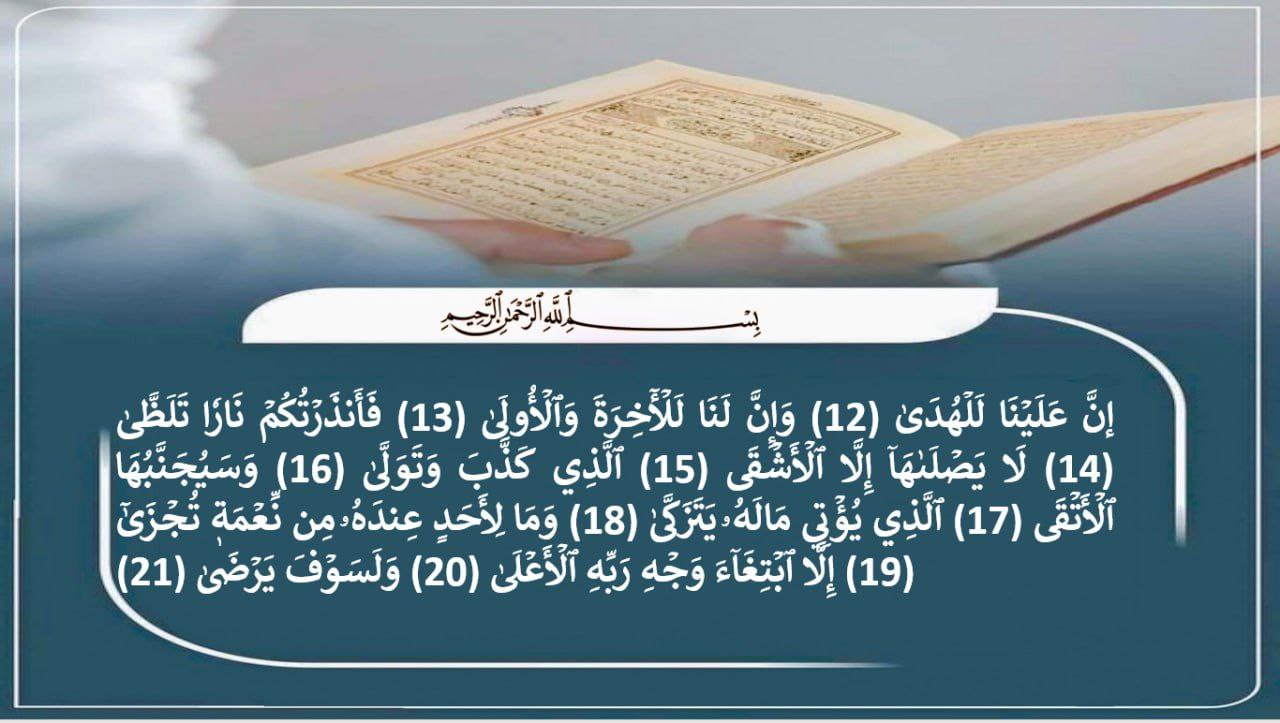 بِسْمِ ٱللَّهِ ٱلرَّحْمَٰنِ ٱلرَّحِيمِ
إنَّ عَلَيْنَا لَلْهُدَىٰ (12) وَإِنَّ لَنَا لَلْأٓخِرَةَ وَٱلْأُولَىٰ (13) فَأَنذَرْتُكُمْ نَارًا تَلَظَّىٰ
(14) لَا يَصْلَىٰهَآ إِلَّا ٱلْأَشْقَى (15) ٱلَّذِي كَذَّبَ وَتَوَلَّىٰ (16) وَسَيُجَنَّبُهَا
ٱلْأَتْقَى (17) ٱلَّذِي يُؤْتِي مَالَهُۥ يَتَزَكَّىٰ (18) وَمَا لِأَحَدٍ عِندَهُۥ مِن نِّعْمَةٖ تُجْزَىٰٓ
(19) إِلَّا ٱبْتِغَآءَ وَجْهِ رَبِّهِ ٱلْأَعْلَىٰ (20) وَلَسَوْفَ يَرْضَىٰ (21)